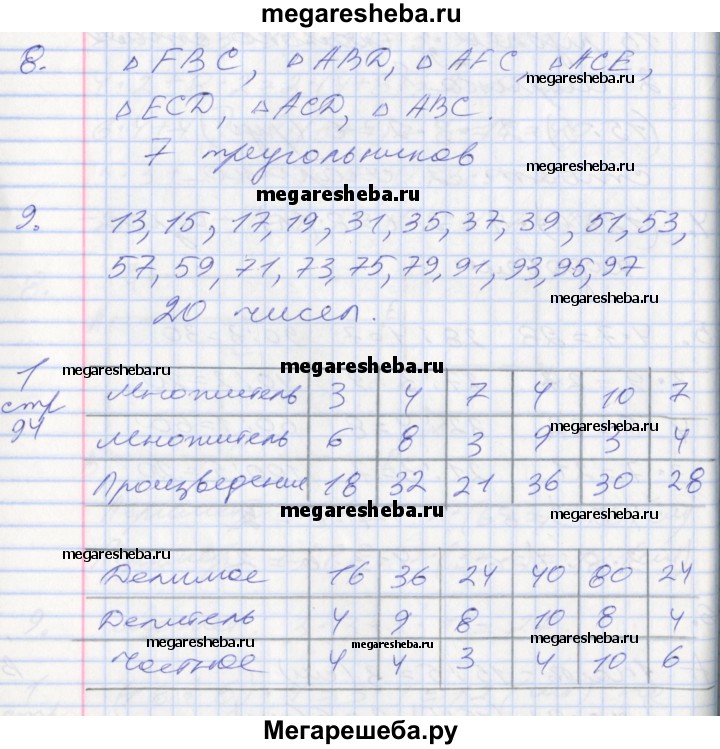 megaresheba.ru
8. △ FBC, △ ABD, △ AFC, △ ACE,
megaresheba.ru
△ ECD, △ ACD, △ ABC.
7 треугольников
megaresheba.ru
megaresheba.ru
9. 13, 15, 17, 19, 31, 35, 37, 39, 51, 53,
57, 59, 71, 73, 75, 79, 91, 93, 95, 97
megaresheba.ru
20 чисел.
megaresheba.ru
megaresheba.ru
1 стр 94
Множитель 3 4 7 4 10 7
megaresheba.ru
Множитель 6 8 3 9 3 4
Произведение 18 32 21 36 30 28
megaresheba.ru
megaresheba.ru
Делимое 16 36 24 40 80 24
Делитель 4 9 8 10 8 4
megaresheba.ru megaresheba.ru megaresheba.ru
Частное 4 4 3 4 10 6
Мегарешеба.ру